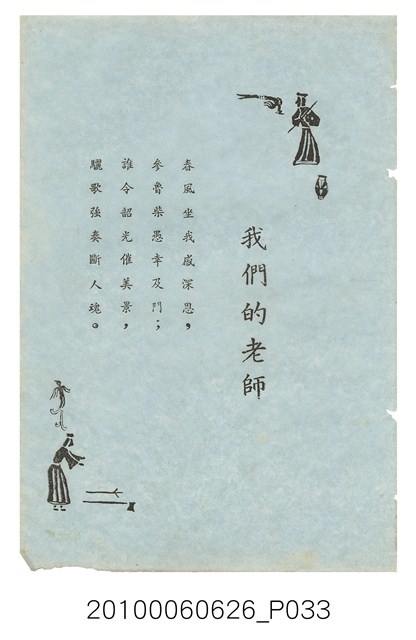 我們的老師
春風坐我感深恩，
參魯柴愚幸及門；
誰令韶光催美景，
驪歌強奏斷人魂。
20100060626_P033